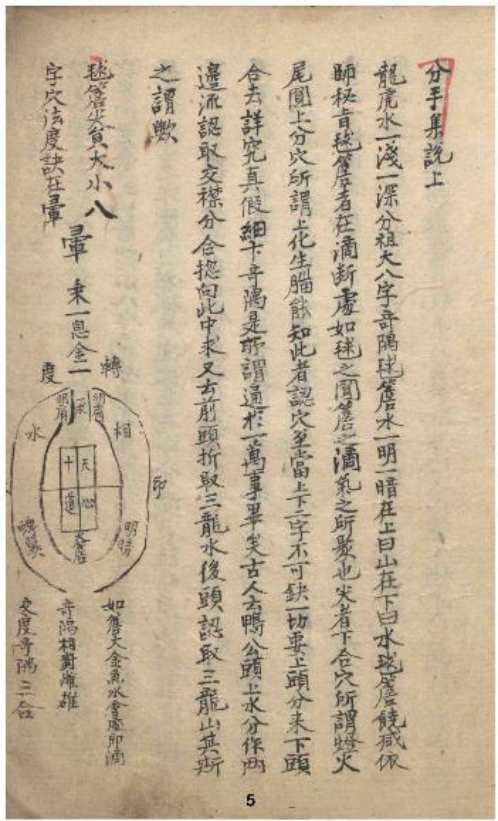 分手集說上
龍虎水一淺一深分祖大八字奇隅毬簷水一明一暗在上曰山在下曰水毬簷饒减依
師秘旨毬簷者在滴断處如毬之圓簷之滴氣之所聚也尖者下合穴所謂蠻火
尾圓上分穴所謂上化生腦能知此者認穴至當上下二字不可缺一切要上頭分来下頭
合去詳究真假細十奇隅是所謂通於一萬事畢矣古人云鴨公頭上水分作兩
邊流認取交襟分合揔向此中求又云前頭折取三龍水後頭認取三龍山其斯
之謂歟
毬簷尖負大小八
字穴法度訣在暈
暈 乘一息金一
轉
度
水
相
印
明肩
明肩
十
天
道
心
大簷
明暗
如簷大金魚水會處即滴
奇隅相對雌雄
交度奇隅三合
5